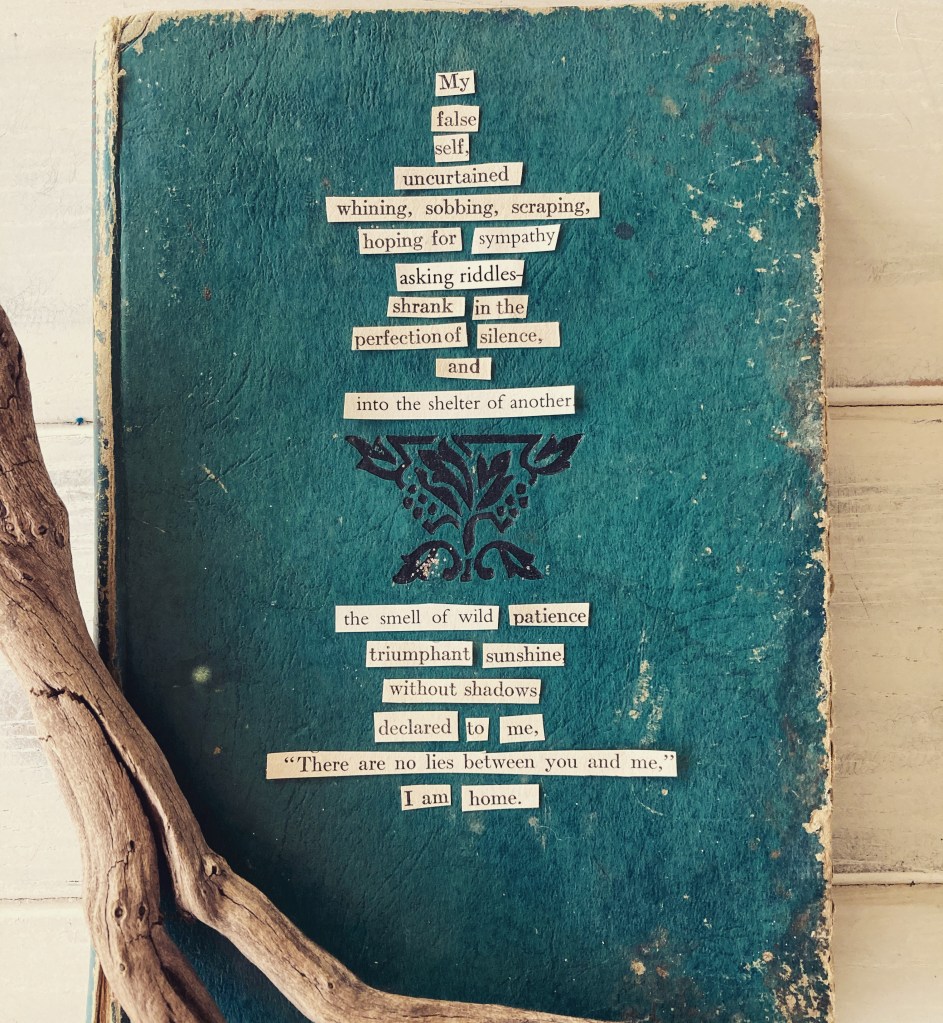 My
false
self,
uncurtained
whining, sobbing, scraping,
hoping for sympathy
asking riddles—
shrank in the
perfection of silence,
and
into the shelter of another
the smell of wild patience
triumphant sunshine
without shadows
declared to me,
“There are no lies between you and me,”
I am home.